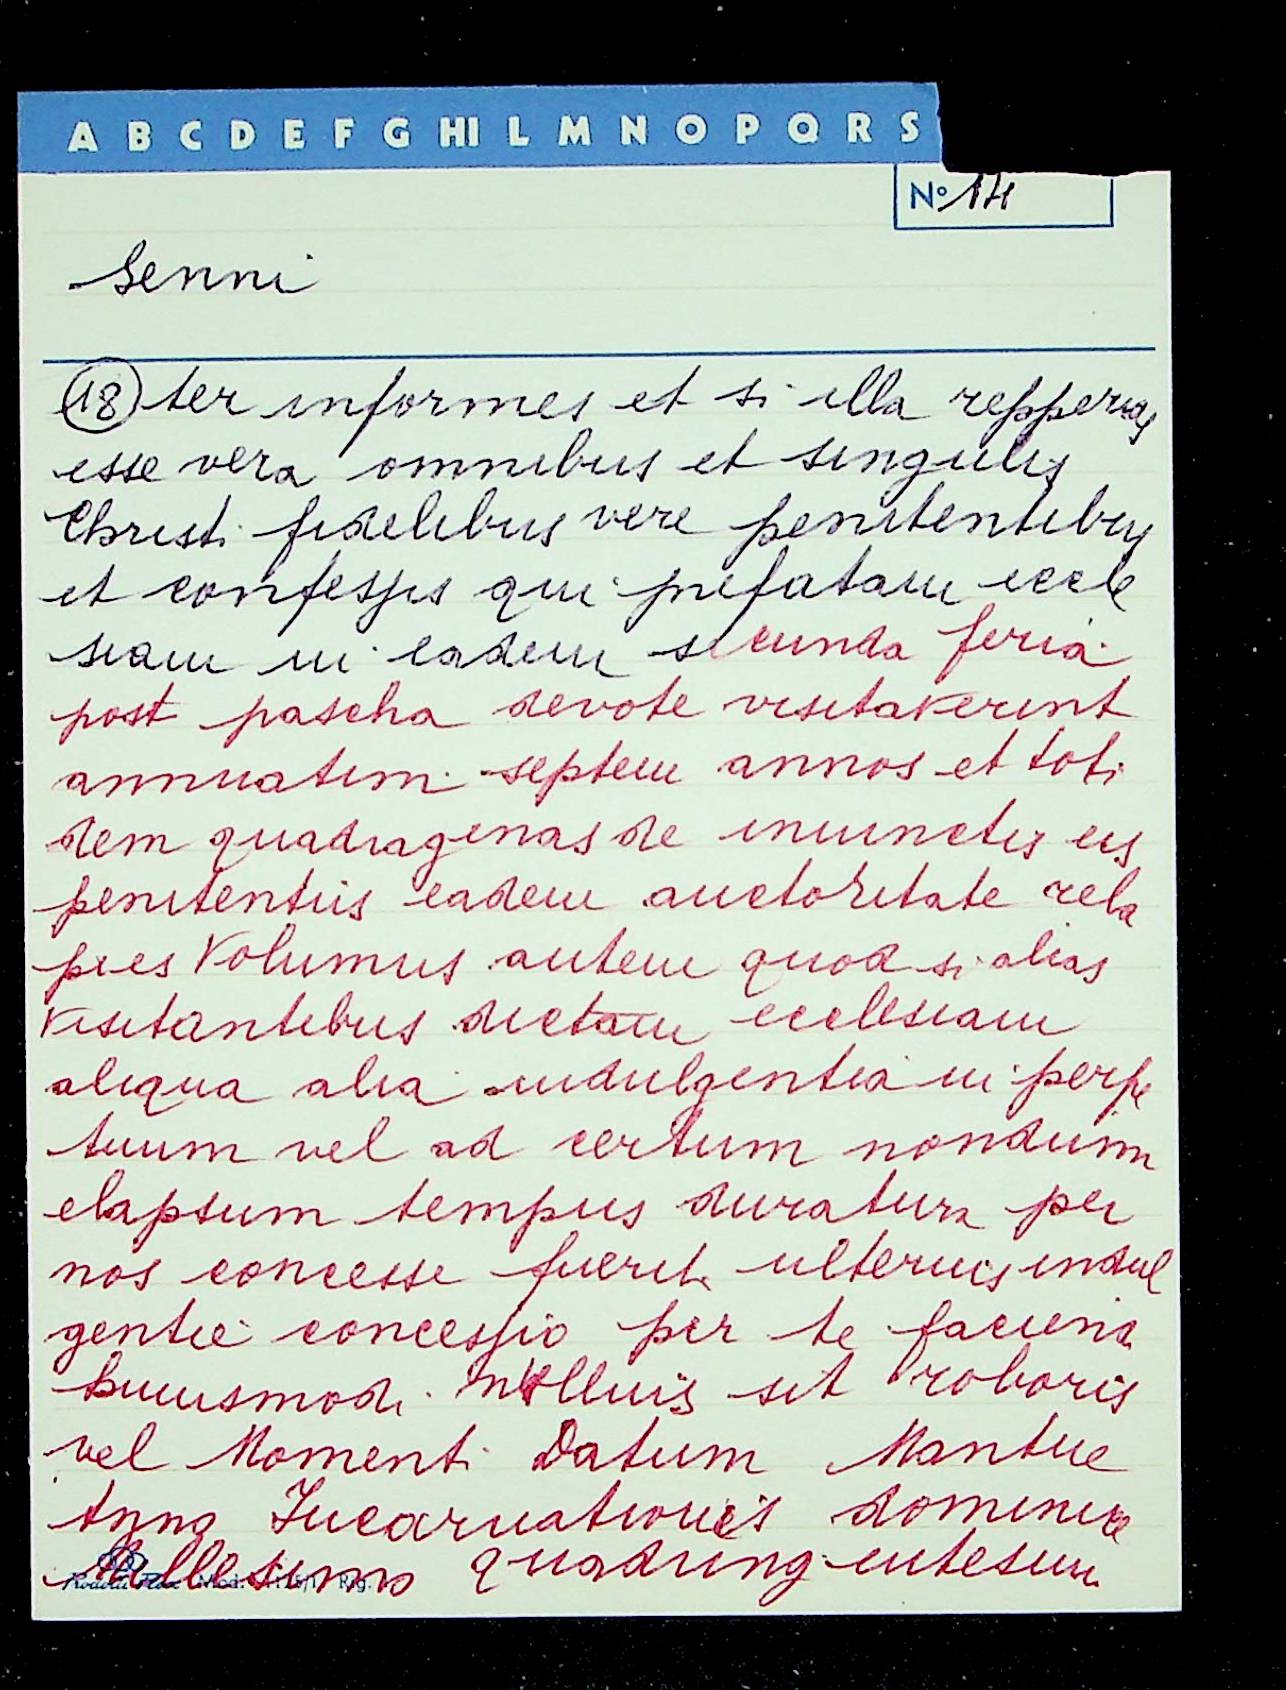 A B C D E F G HI L M N O P Q R S
Nº 14
Senni
(18) ter informes et si illa repperias
esse vera omnibus et singulis
Christi fidelibus vere penitentibus
et confessis qui prefatam eccle
siam in eadem secunda feria
post pascha devote visitaverint
annuatim septem annos et toti
dem quadragenas de iniunctis eis
penitentiis eadem auctoritate rela
xes Volumus autem quod si alias
visitantibus dictam ecclesiam
aliqua alia indulgentia in perpe
tuum vel ad certum nondum
elapsum tempus duratura per
nos concesse fuerit ulterius indul
gentie concessio per te facienda
huiusmodi nullius sit roboris
vel Momenti Datum Mantue
Anno Incarnationis dominice
Millesimo quadringentesimo